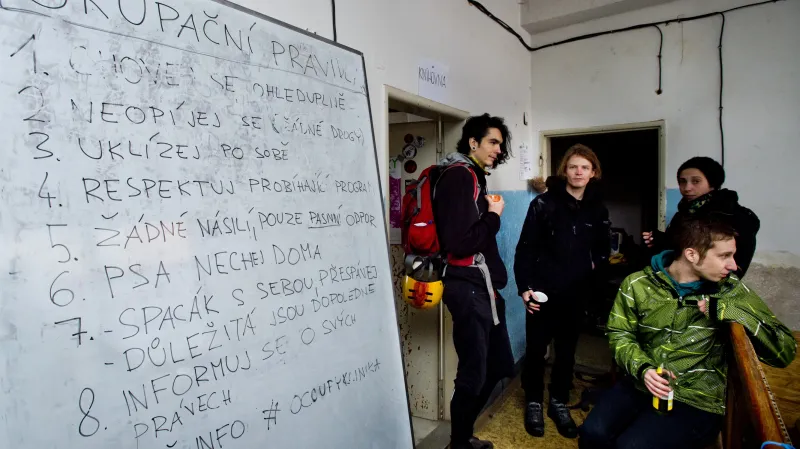 OKUPAČNÍ PRAVIDL
1. CHOVEJ SE OHLEDUPLNĚ
2. NEOPÍJEJ SE (ŽÁDNÉ DROGY)
3. UKLÍZEJ PO SOBĚ
4. RESPEKTUJ PROBÍHAJÍCÍ PROGRA
5. ŽÁDNÉ NÁSILÍ, POUZE PASIVNÍ ODPOR
6. PSA NECHEJ DOMA
7. - SPACÁK S SEBOU, PŘESPÁVEJ
- DŮLEŽITÁ JSOU DOPOLEDNE
8. INFORMUJ SE O SVÝCH
PRÁVECH
INFO # OCCUPYKLINIKA
KNIHOVNA